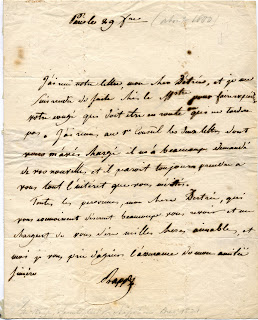 Paris le 29 9bre
J'ai reçu votre lettre, mon cher Bertrin, et je me
suis de suite chez le Mtre pour faire expédier
votre congé qui doit être en route que ne tardera
pas. J'ai remis au Conseil les dont
vous m'avés chargé il m'a beaucoup demandé
de vos nouvelles, et il paroit toujours prendre a
vous tout l'interet que vous mérités.
Toutes les personnes, mon cher Bertrin, qui
vous connoissent désirent beaucoup vous revoir et me
chargent de vous dire milles choses aimables, et
moi je vous prie d'agréer l'assurance de mon amitié
sincère
Rapp